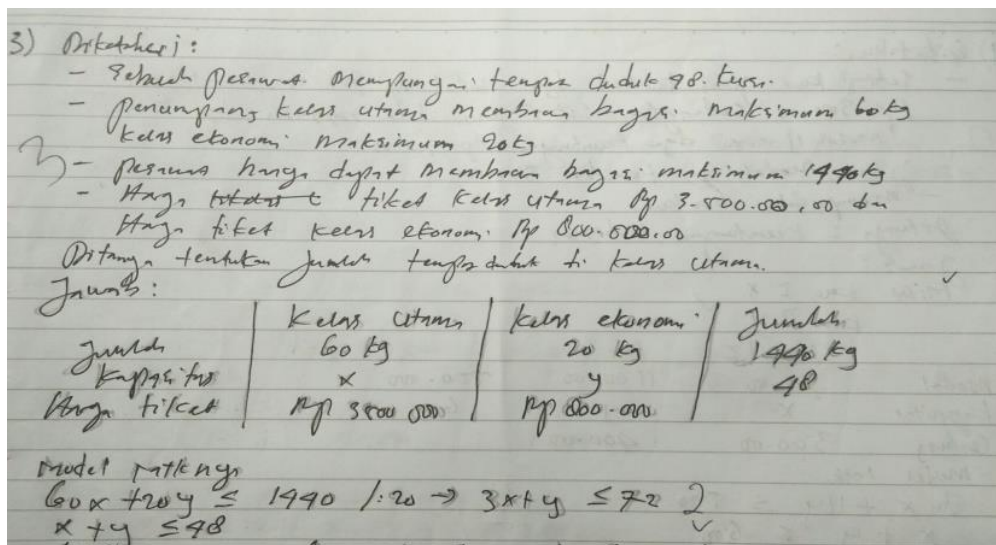 3) Diketahui :
- Sebuah pesawat mempunyai tempat duduk 48 kursi.
- penumpang kelas utama membawa bagasi maksimum 60 kg
kelas ekonomi maksimum 20 kg
3 - pesawat hanya dapat membawa bagasi maksimum 1440 kg
- Harga tiket kelas utama Rp 3.500.000,00 dan
Harga tiket kelas ekonomi Rp 800.000.00
Ditanya tentukan jumlah tempat duduk di kelas utama.
Jawab :
Kelas utama Kelas ekonomi Jumlah
Jumlah 60 kg 20 kg 1440 kg
Kapasitas x y 48
Harga tiket Rp 3500 000 Rp 800.000
Model
60x + 20y ≤ 1440 /:20 → 3x+y ≤ 72 2
x + y ≤ 48